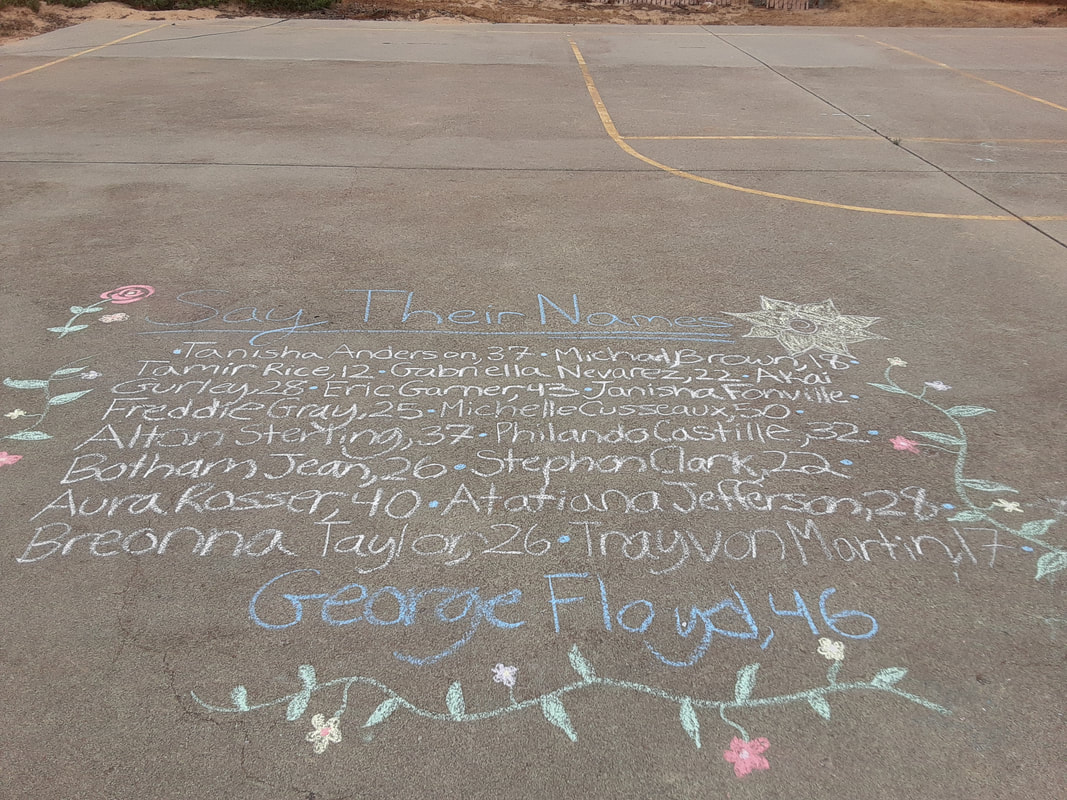 Say Their Names
•Tanisha Anderson, 37 • Michael Brown, 18 •
Tamir Rice, 12 • Gabriella Nevarez, 22 • Akai
Gurley, 28 • Eric Garner, 43 • Janisha Fonville •
Freddie Gray, 25 • Michelle Cusseaux, 50 •
Alton Sterling, 37 • Philando Castille, 32 •
Botham Jean, 26 • Stephon Clark, 22 •
Aura Rosser, 40 • Atatiana Jefferson, 28 •
Breonna Taylor, 26 • Trayvon Martin, 17 •
George Floyd, 46